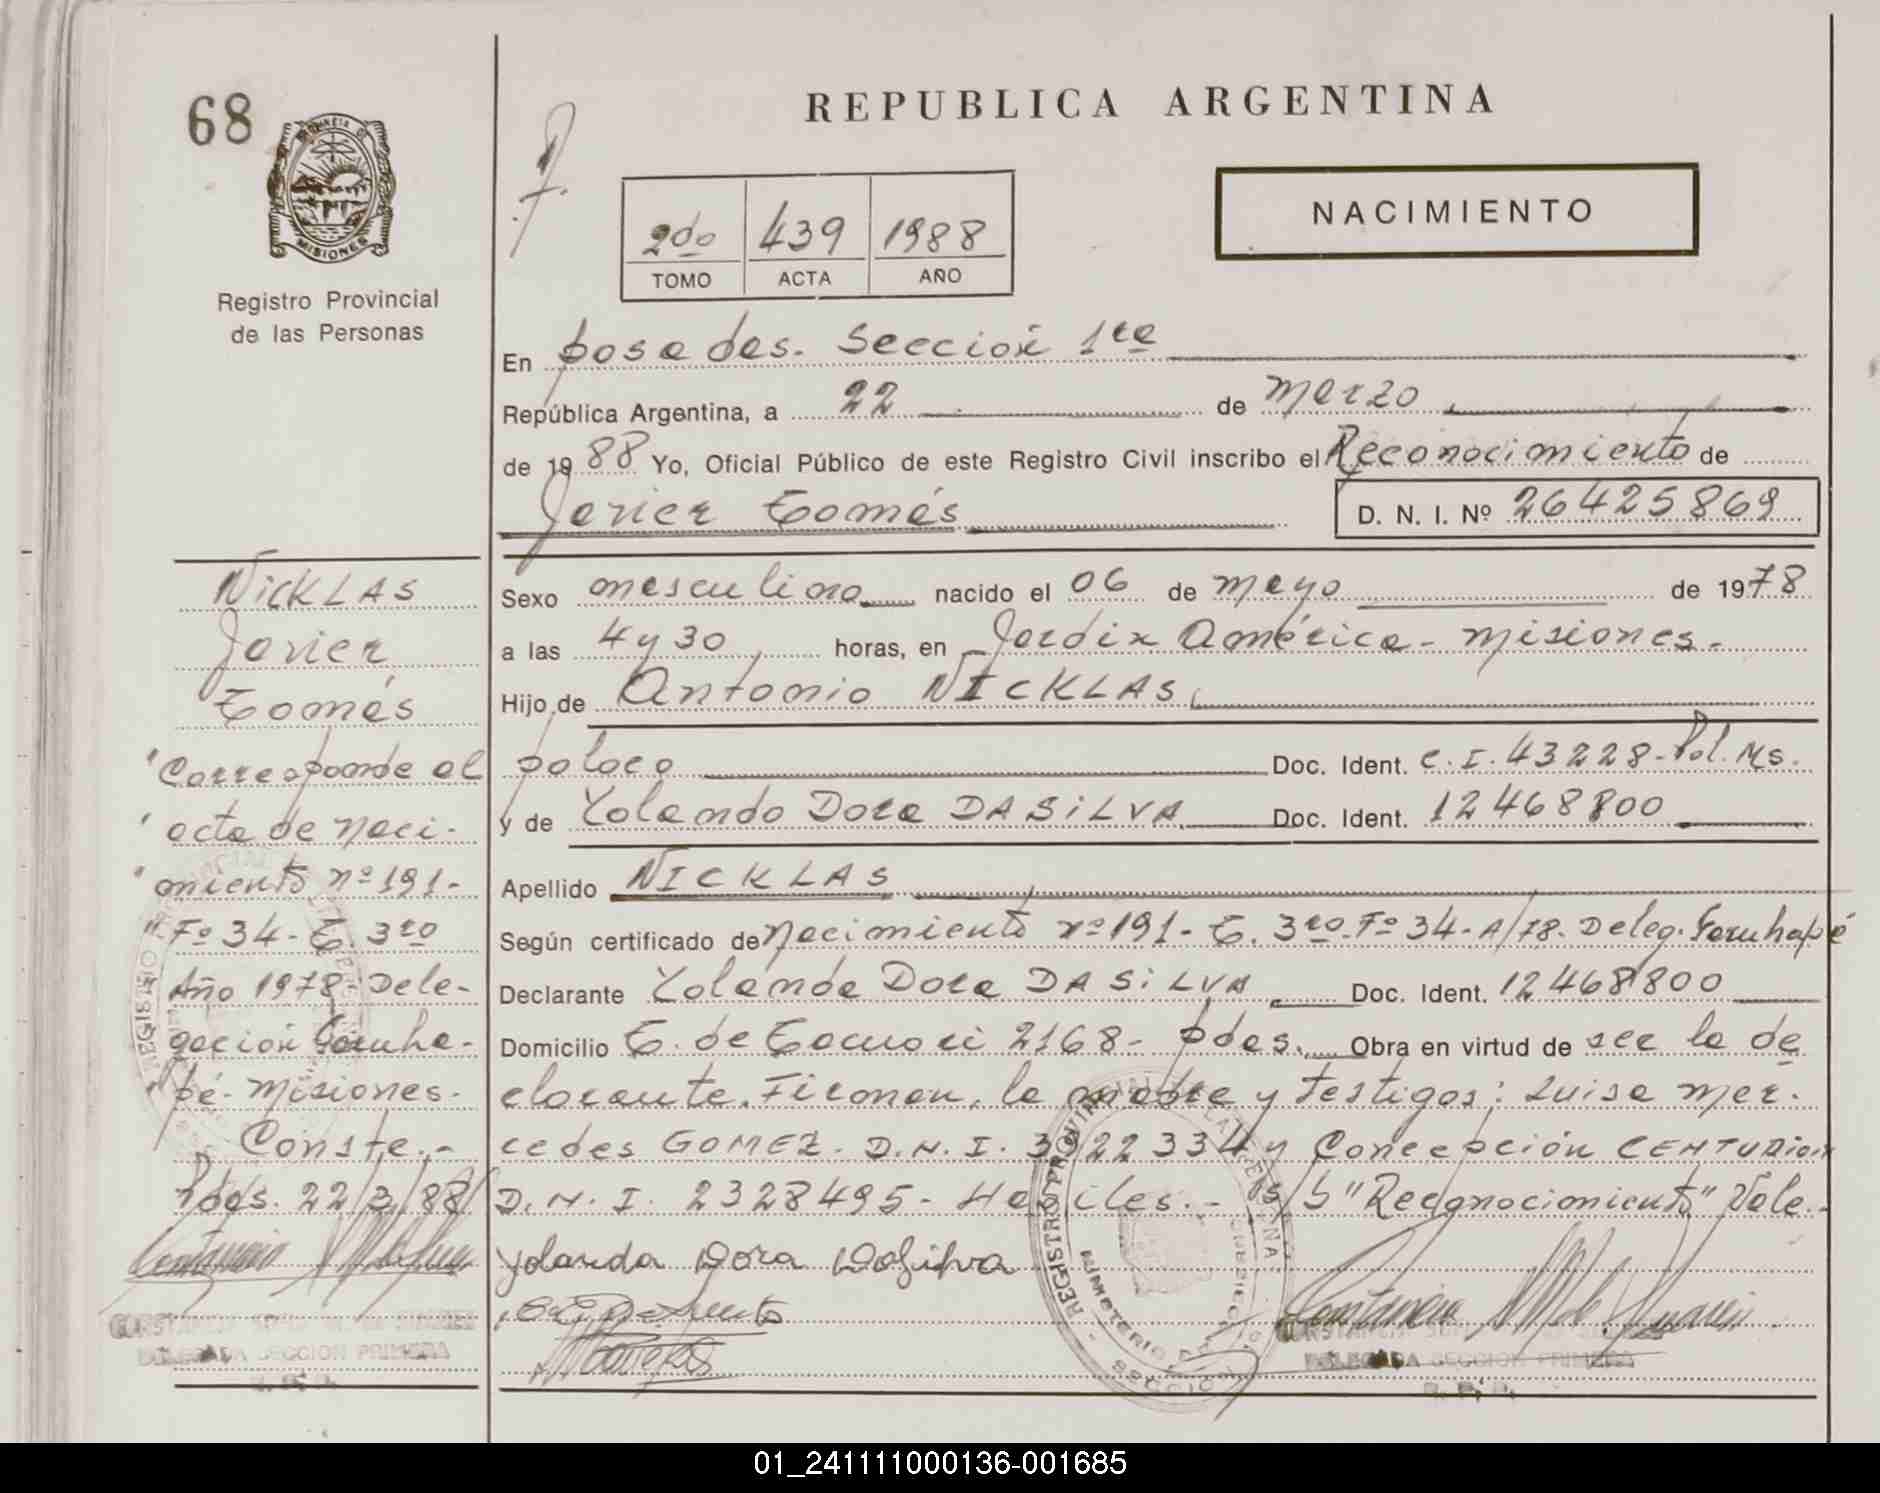 68
PROVINCIA DE
MISIONES
Registro Provincial
de las Personas
REPUBLICA ARGENTINA
NACIMIENTO
2do 439 1988
TOMO ACTA AÑO
En posadas. Sección 1ra
República Argentina, a 22 de marzo
de 1988 Yo, Oficial Público de este Registro Civil inscribo el Reconocimiento de
Javier Tomás D. N. I. Nº 26425869
Sexo masculino nacido el 06 de mayo de 1978
a las 4 y 30 horas, en Jardín América - misiones.
Hijo de Antonio NICKLAS
polaco Doc. Ident. C.I. 43228-Pol. Ms.
y de Yolanda Dora DA SiLVA Doc. Ident. 12468800
Apellido NICKLAS
Según certificado de nacimiento nº 191- T. 3ro-Fº 34-A/78-Deleg. Garuhapé
Declarante Yolanda Dora DA SiLVA Doc. Ident. 12468800
Domicilio T. de Tacuari 2168- pdas. Obra en virtud de ser la de
clarante. Firman, la madre y testigos: Luisa Mer-
cedes GOMEZ- D.N.I. 3922334 y Concepción CENTURION
D.N.I. 2328495- Hábiles.- S/b "Reconocimiento" Vale.-
Yolanda Dora Dasilva
NICKLAS
Javier
Tomás
"Corresponde al
" acta de naci-
" miento nº 191-
" Fº 34- T. 3ro
Año 1978- Dele-
gación Garuha-
" pé- Misiones-
Conste.-
Pdas. 22/3/88
DELEGADA SECCION PRIMERA
DELEGADA SECCION PRIMERA
REGISTRO PROVINCIAL DE LAS PERSONAS
MINISTERIO
01_241111000136-001685